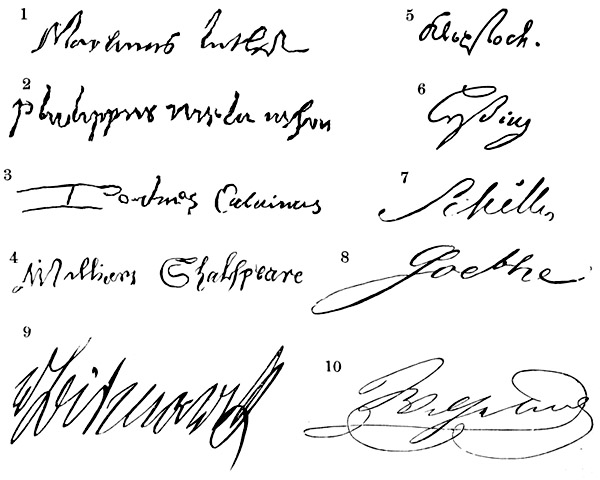 1
Martinus Luther
2
Philippus
3
Calvinus
4
William Shakspeare
5
Klopstock.
6
Lessing
7
Schiller
8
Goethe
9
v Bismarck
10